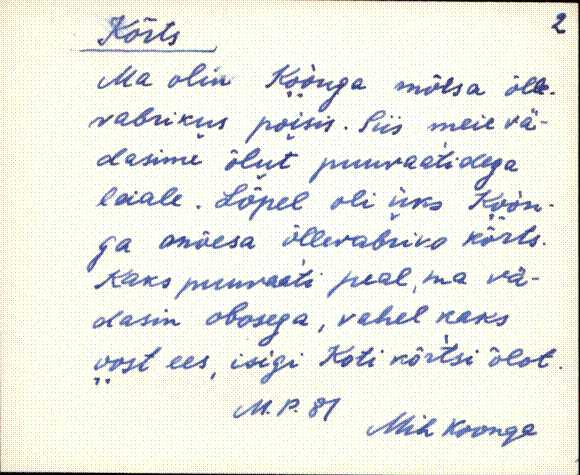 2
Kõrts
Ma olin Koonga mõtsa õlle-
vabrikus poisis. Siis meie vä-
dasime õlut puuvaatidega
laiale. Lõpel oli üks Koon-
ga mõesa õllevabriva kõrts.
Kaks puuvaati peal, ma vä-
dasin obosega, vahel kaks
vost ees, isigi Koti kõrtsi õlot.
M. P. 81
Mih Koonga